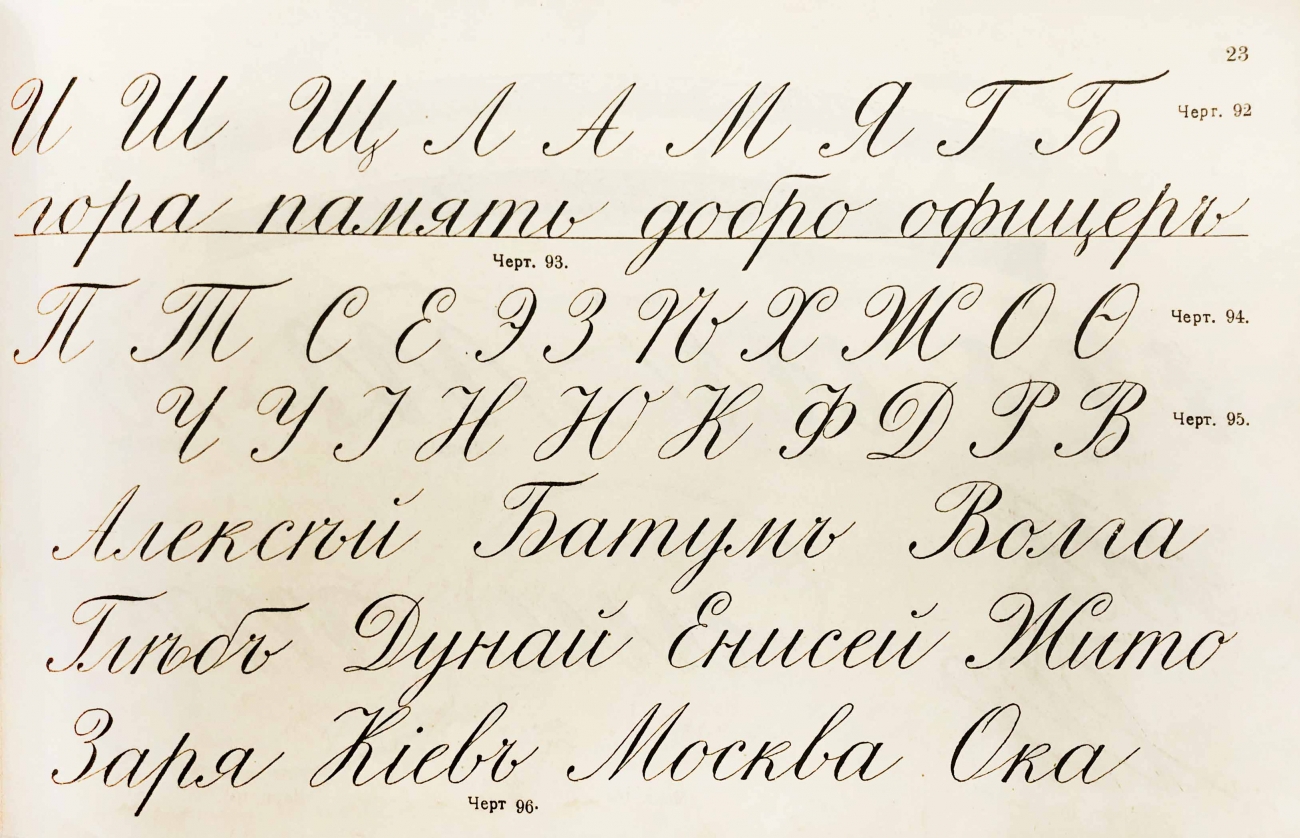 23
И Ш Щ Л А М Я Г Б Черт. 92
гора память добро офицеръ
Черт. 93.
П Т С Е Э З Ѣ Х Ж О Ѳ Черт. 94.
Ч У І Н Ю К Ф Д Р В Черт. 95.
Алексѣй Батумъ Волга
Глѣбъ Дунай Енисей Жито
Заря Кіевъ Москва Ока
Черт 96.